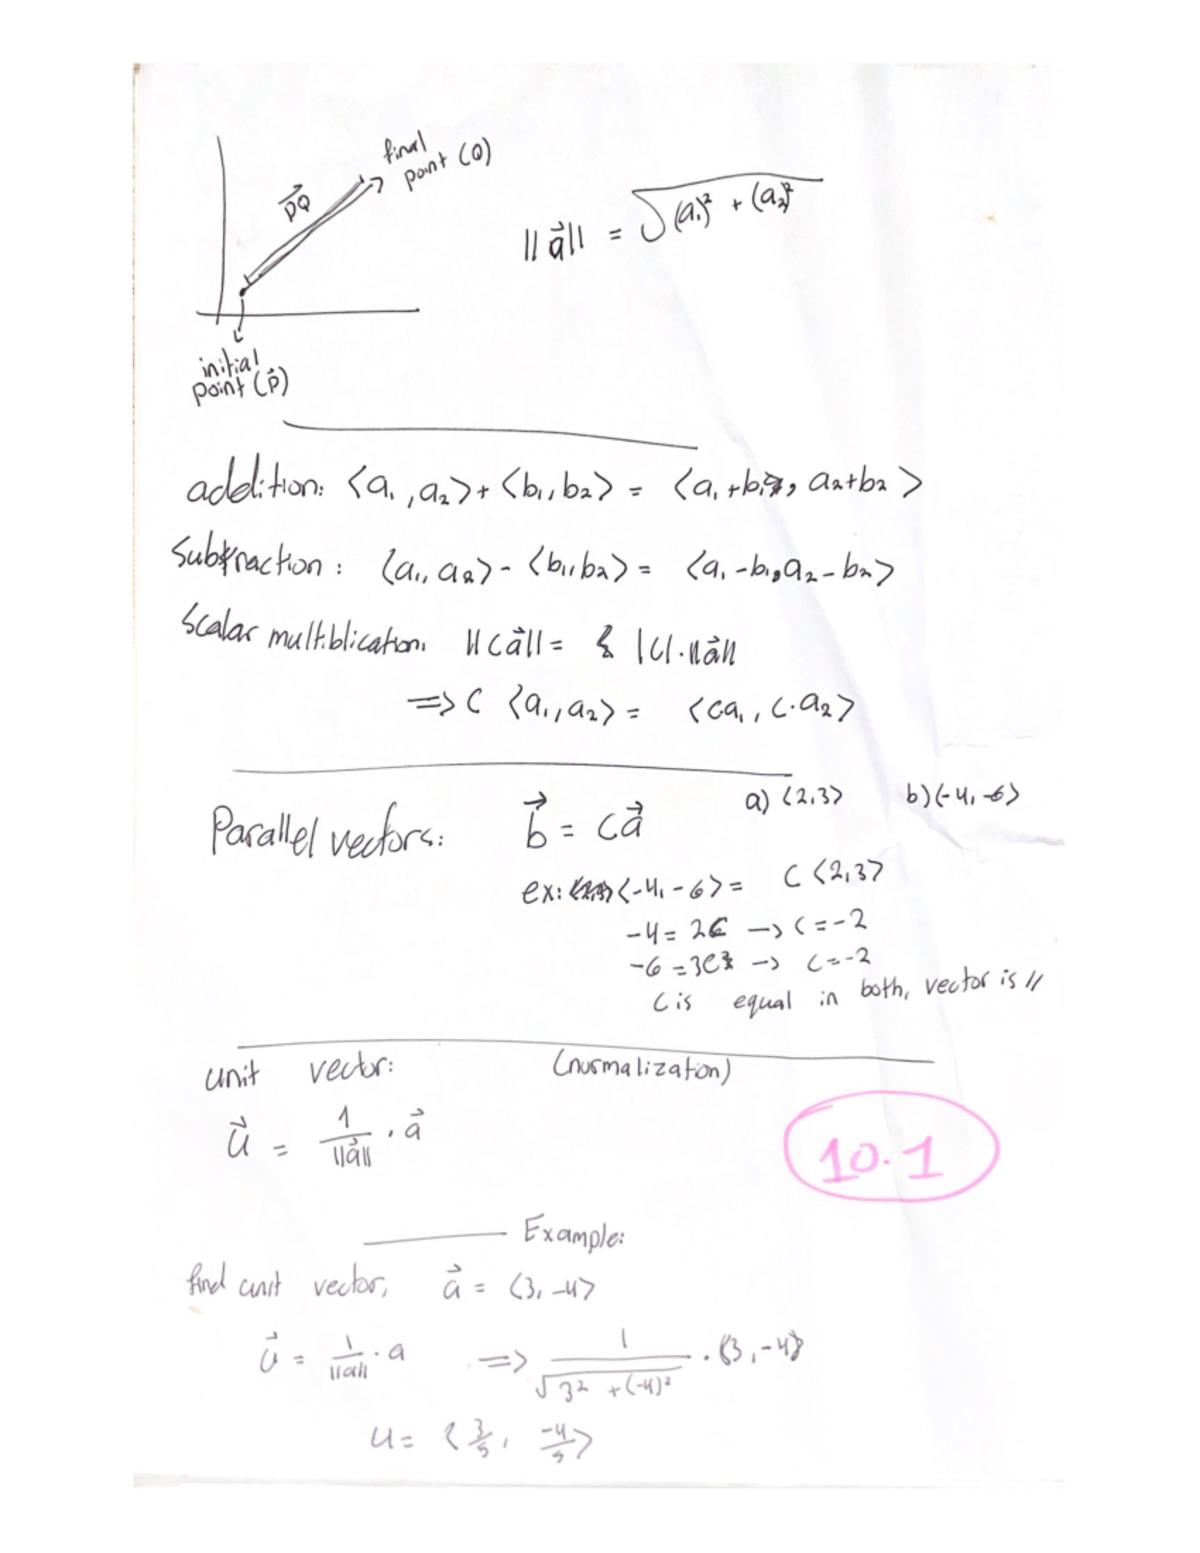 final
point (Q)
PQ⃗
||a⃗|| = √(a₁)² + (a₂)²
initial
point (P⃗)
addition: <a₁, a₂> + <b₁, b₂> = <a₁ + b₁, a₂+b₂>
Subtraction: <a₁, a₂> - <b₁, b₂> = <a₁ - b₁, a₂ - b₂>
Scalar multiblication: ||ca⃗|| = |c|.||a⃗||
=> C <a₁, a₂> = <ca₁, c.a₂>
a) <2,3> b) <-4, -6>
Parallel vectors: b⃗ = ca⃗
ex: <-4, -6> = C <2,3>
-4 = 2C -> C = -2
-6 = 3C -> C = -2
C is equal in both, vector is //
unit vector: (normalization)
u⃗ = 1/||a⃗|| . a⃗
10.1
Example:
find unit vector, a⃗ = <3, -4>
u⃗ = 1/||a|| . a => 1/√3² + (-4)² . <3, -4>
u = <3/5, -4/5>